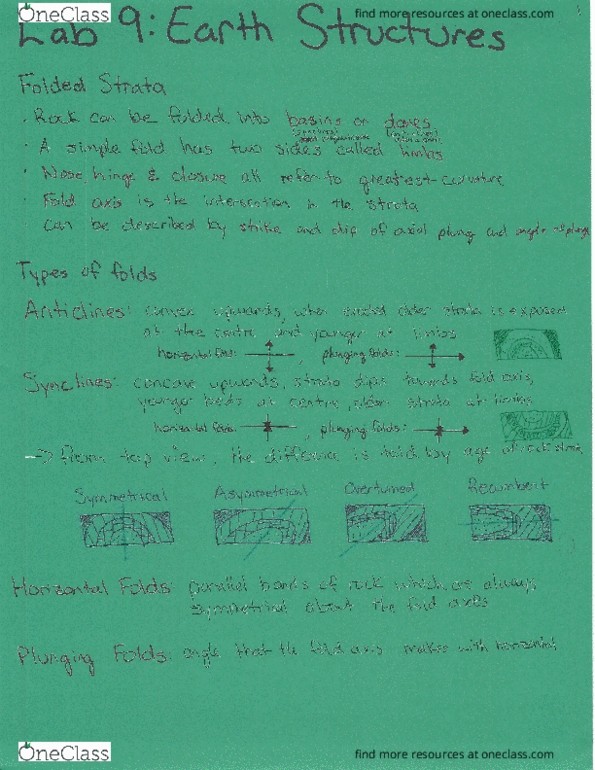 OneClass
find more resources at oneclass.com
Lab 9: Earth Structures
Folded Strata
· Rock can be folded into basins or domes
· A simple fold has two sides called limbs
· Nose, hinge & closure all refer to greatest curvature
· Fold axis is the intersection in the strata
can be described by strike and dip of axial plung and angle of plunge
Types of folds
Anticlines: convex upwards, when eroded older strata is exposed
at the centre and younger at limbs
horizontal folds: , plunging folds:
Synclines: concave upwards, strata dips towards fold axis,
younger beds at centre, older strata at
horizontal folds: , plunging folds:
→ From top view, the difference is by age of rock
Symmetrical Asymmetrical Overturned Recumbent
Horizontal Folds: parallel bands of rock which are always
symmetrical about the fold axes
Plunging Folds: angle that the fold axis makes with horizontal
OneClass
find more resources at oneclass.com